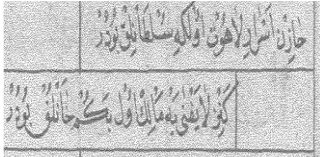 خازن اسرار لاهوت اول كه سلطانلق بودر
كنز لا يفنى يه مالك اول بكم خانلق بودر